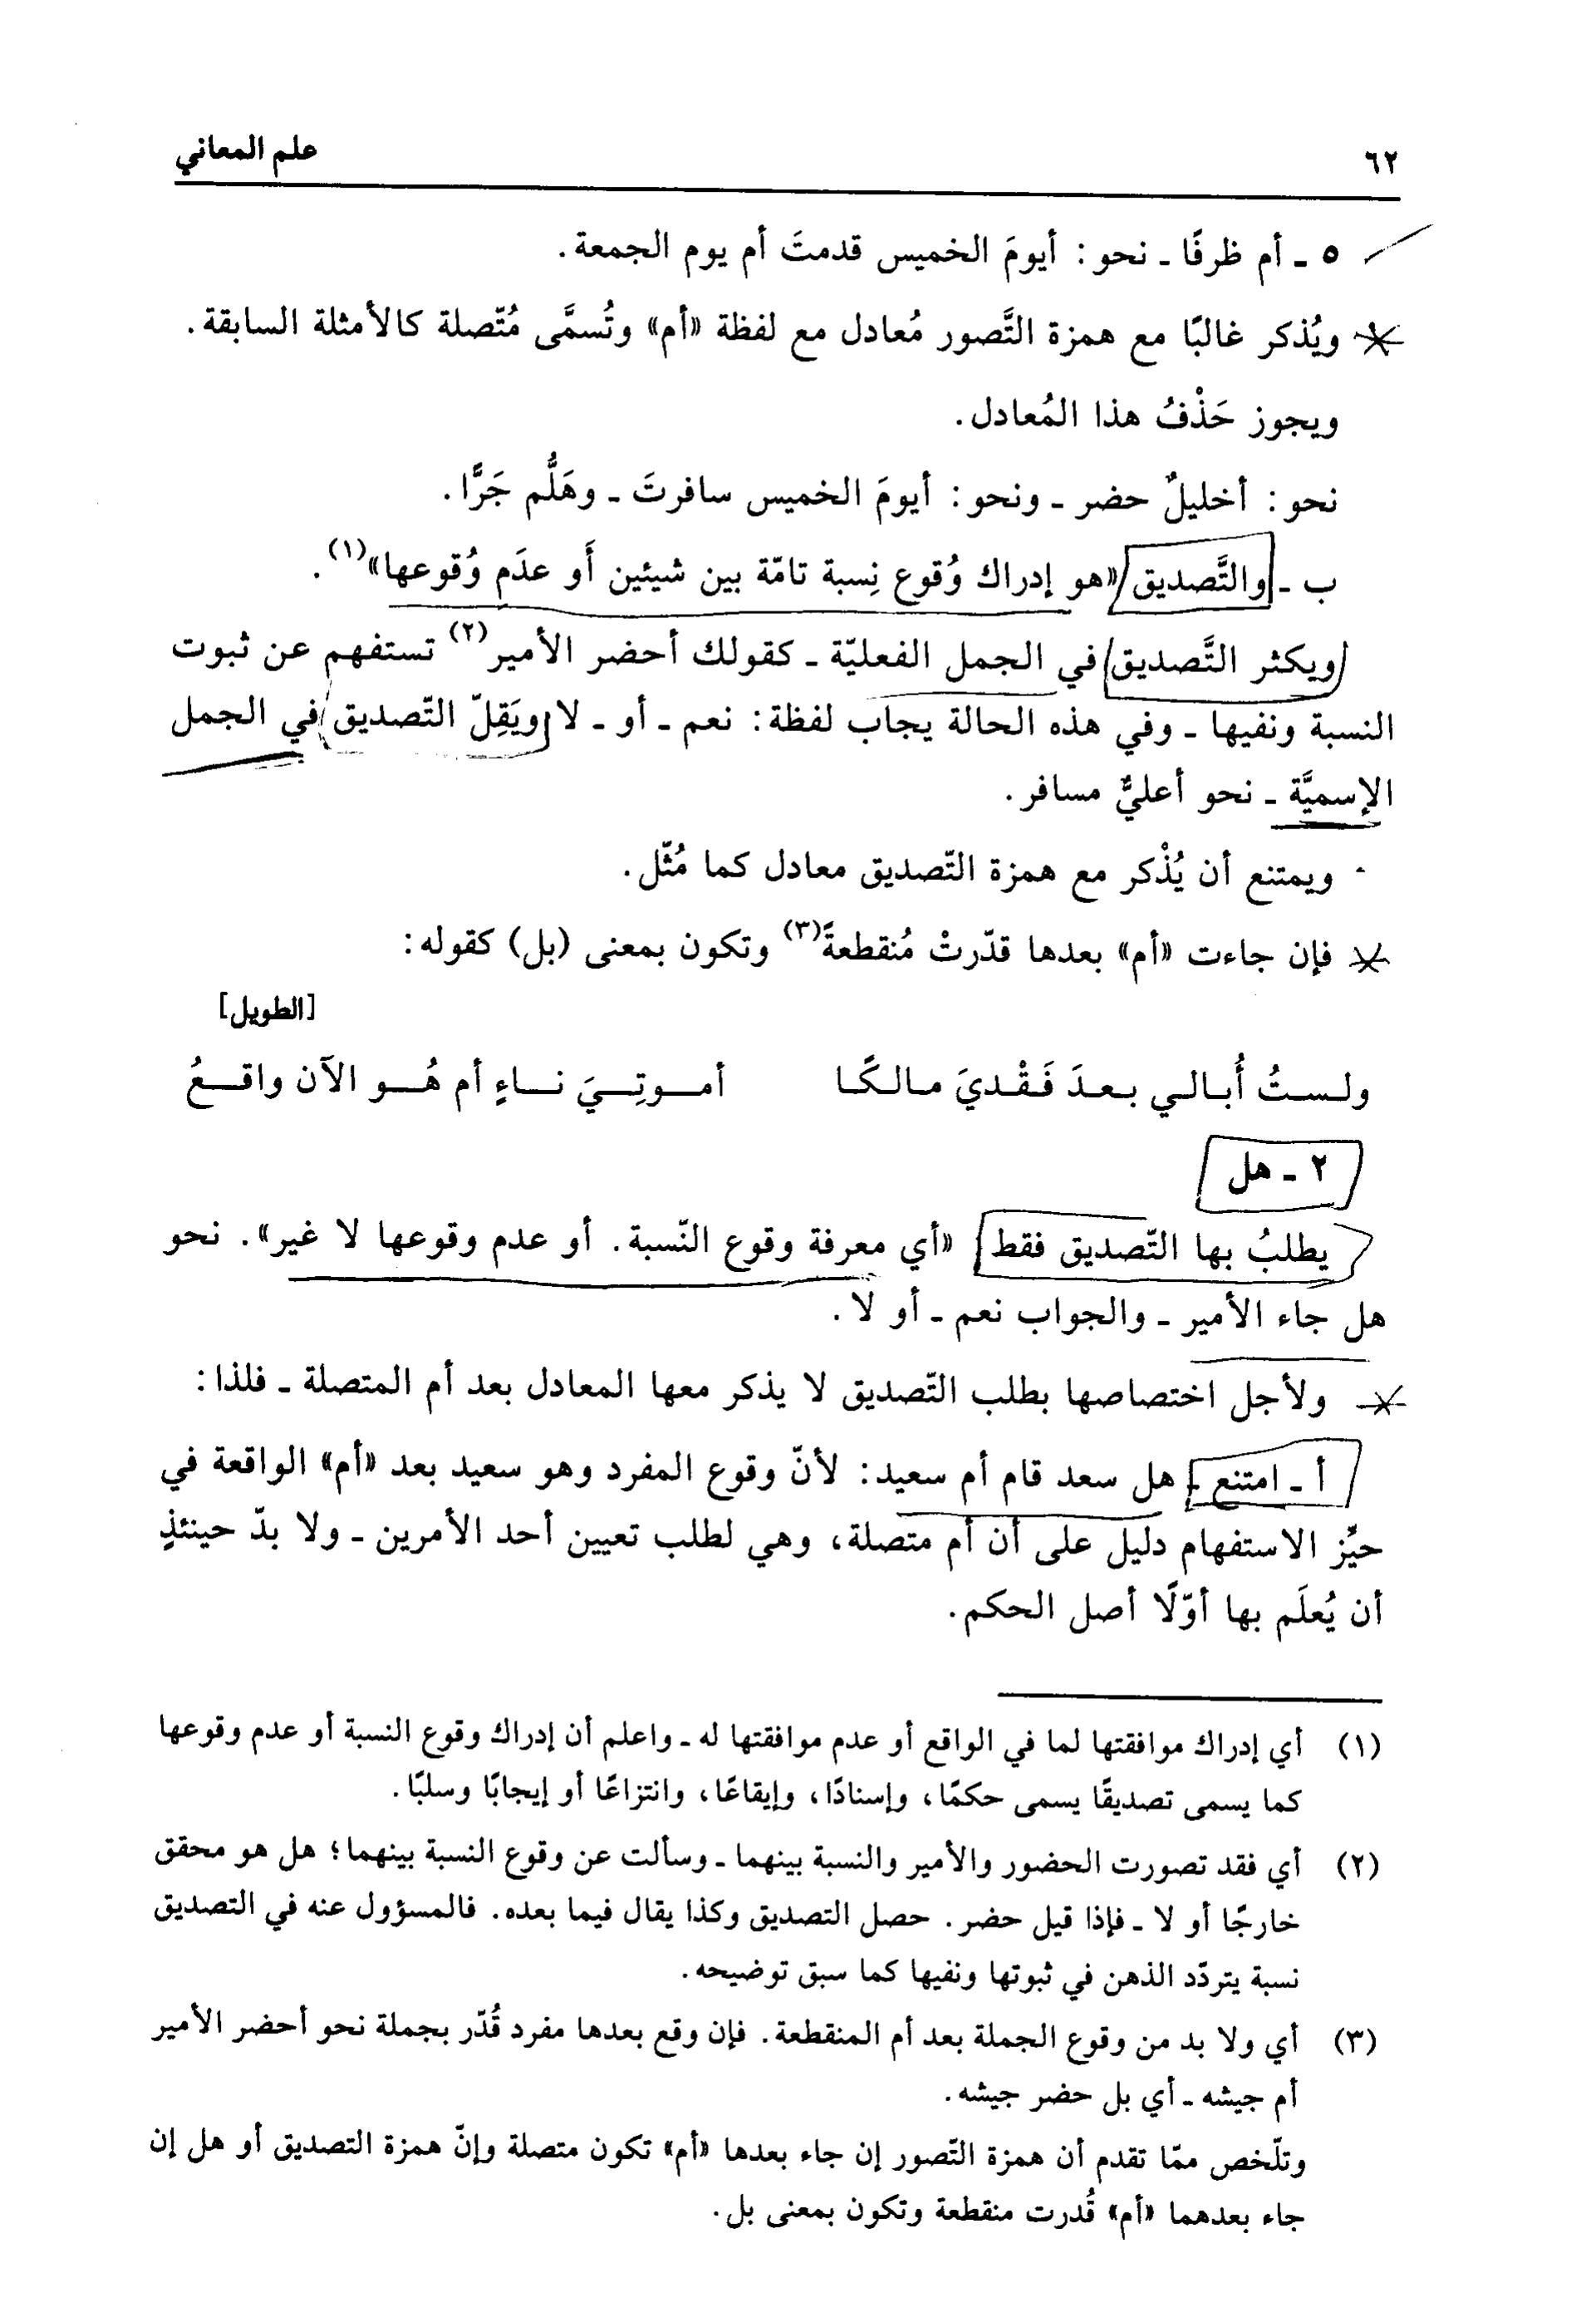 ٦٢
علم المعاني
٥ ـ أم ظرفًا ـ نحو: أيومَ الخميس قدمتَ أم يوم الجمعة.
ويُذكر غالبًا مع همزة التَّصور مُعادل مع لفظة «أم» وتُسمَّى مُتّصلة كالأمثلة السابقة.
ويجوز حَذْفُ هذا المُعادل.
نحو: أخليلٌ حضر ـ ونحو: أيومَ الخميس سافرتَ ـ وهَلُّم جَرًّا.
ب ـ والتَّصديق «هو إدراك وُقوع نِسبة تامّة بين شيئين أَو عدَم وُقوعها»(١).
ويكثر التَّصديق في الجمل الفعليّة ـ كقولك أحضر الأمير(٢) تستفهم عن ثبوت
النسبة ونفيها ـ وفي هذه الحالة يجاب لفظة: نعم ـ أو ـ لا ويَقِلّ التّصديق في الجمل
الإسميَّة ـ نحو أعليٌّ مسافر.
ويمتنع أن يُذْكر مع همزة التّصديق معادل كما مُثّل.
فإن جاءت «أم» بعدها قدّرتْ مُنقطعةً(٣) وتكون بمعنى (بل) كقوله:
[الطويل]
ولستُ أُبالي بعدَ فَقْديَ مالكًا أموتِيَ ناءٍ أم هُو الآن واقعُ
٢ ـ هل
يطلبُ بها التّصديق فقط «أي معرفة وقوع النّسبة. أو عدم وقوعها لا غير». نحو
هل جاء الأمير ـ والجواب نعم ـ أو لا.
ولأجل اختصاصها بطلب التّصديق لا يذكر معها المعادل بعد أم المتصلة ـ فلذا:
أ ـ امتنع ـ هل سعد قام أم سعيد: لأنّ وقوع المفرد وهو سعيد بعد «أم» الواقعة في
حيِّز الاستفهام دليل على أن أم متصلة، وهي لطلب تعيين أحد الأمرين ـ ولا بدّ حينئذٍ
أن يُعلَم بها أوّلًا أصل الحكم.
(١) أي إدراك موافقتها لما في الواقع أو عدم موافقتها له ـ واعلم أن إدراك وقوع النسبة أو عدم وقوعها
كما يسمى تصديقًا يسمى حكمًا، وإسنادًا، وإيقاعًا، وانتزاعًا أو إيجابًا وسلبًا.
(٢) أي فقد تصورت الحضور والأمير والنسبة بينهما ـ وسألت عن وقوع النسبة بينهما؛ هل هو محقق
خارجًا أو لا ـ فإذا قيل حضر. حصل التصديق وكذا يقال فيما بعده. فالمسؤول عنه في التصديق
نسبة يتردّد الذهن في ثبوتها ونفيها كما سبق توضيحه.
(٣) أي ولا بد من وقوع الجملة بعد أم المنقطعة. فإن وقع بعدها مفرد قُدّر بجملة نحو أحضر الأمير
أم جيشه ـ أي بل حضر جيشه.
وتلّخص ممّا تقدم أن همزة التّصور إن جاء بعدها «أم» تكون متصلة وإنّ همزة التصديق أو هل إن
جاء بعدهما «أم» قُدرت منقطعة وتكون بمعنى بل.